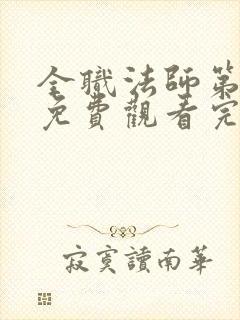 全職法師第
免費觀看完
寂寞讀南華